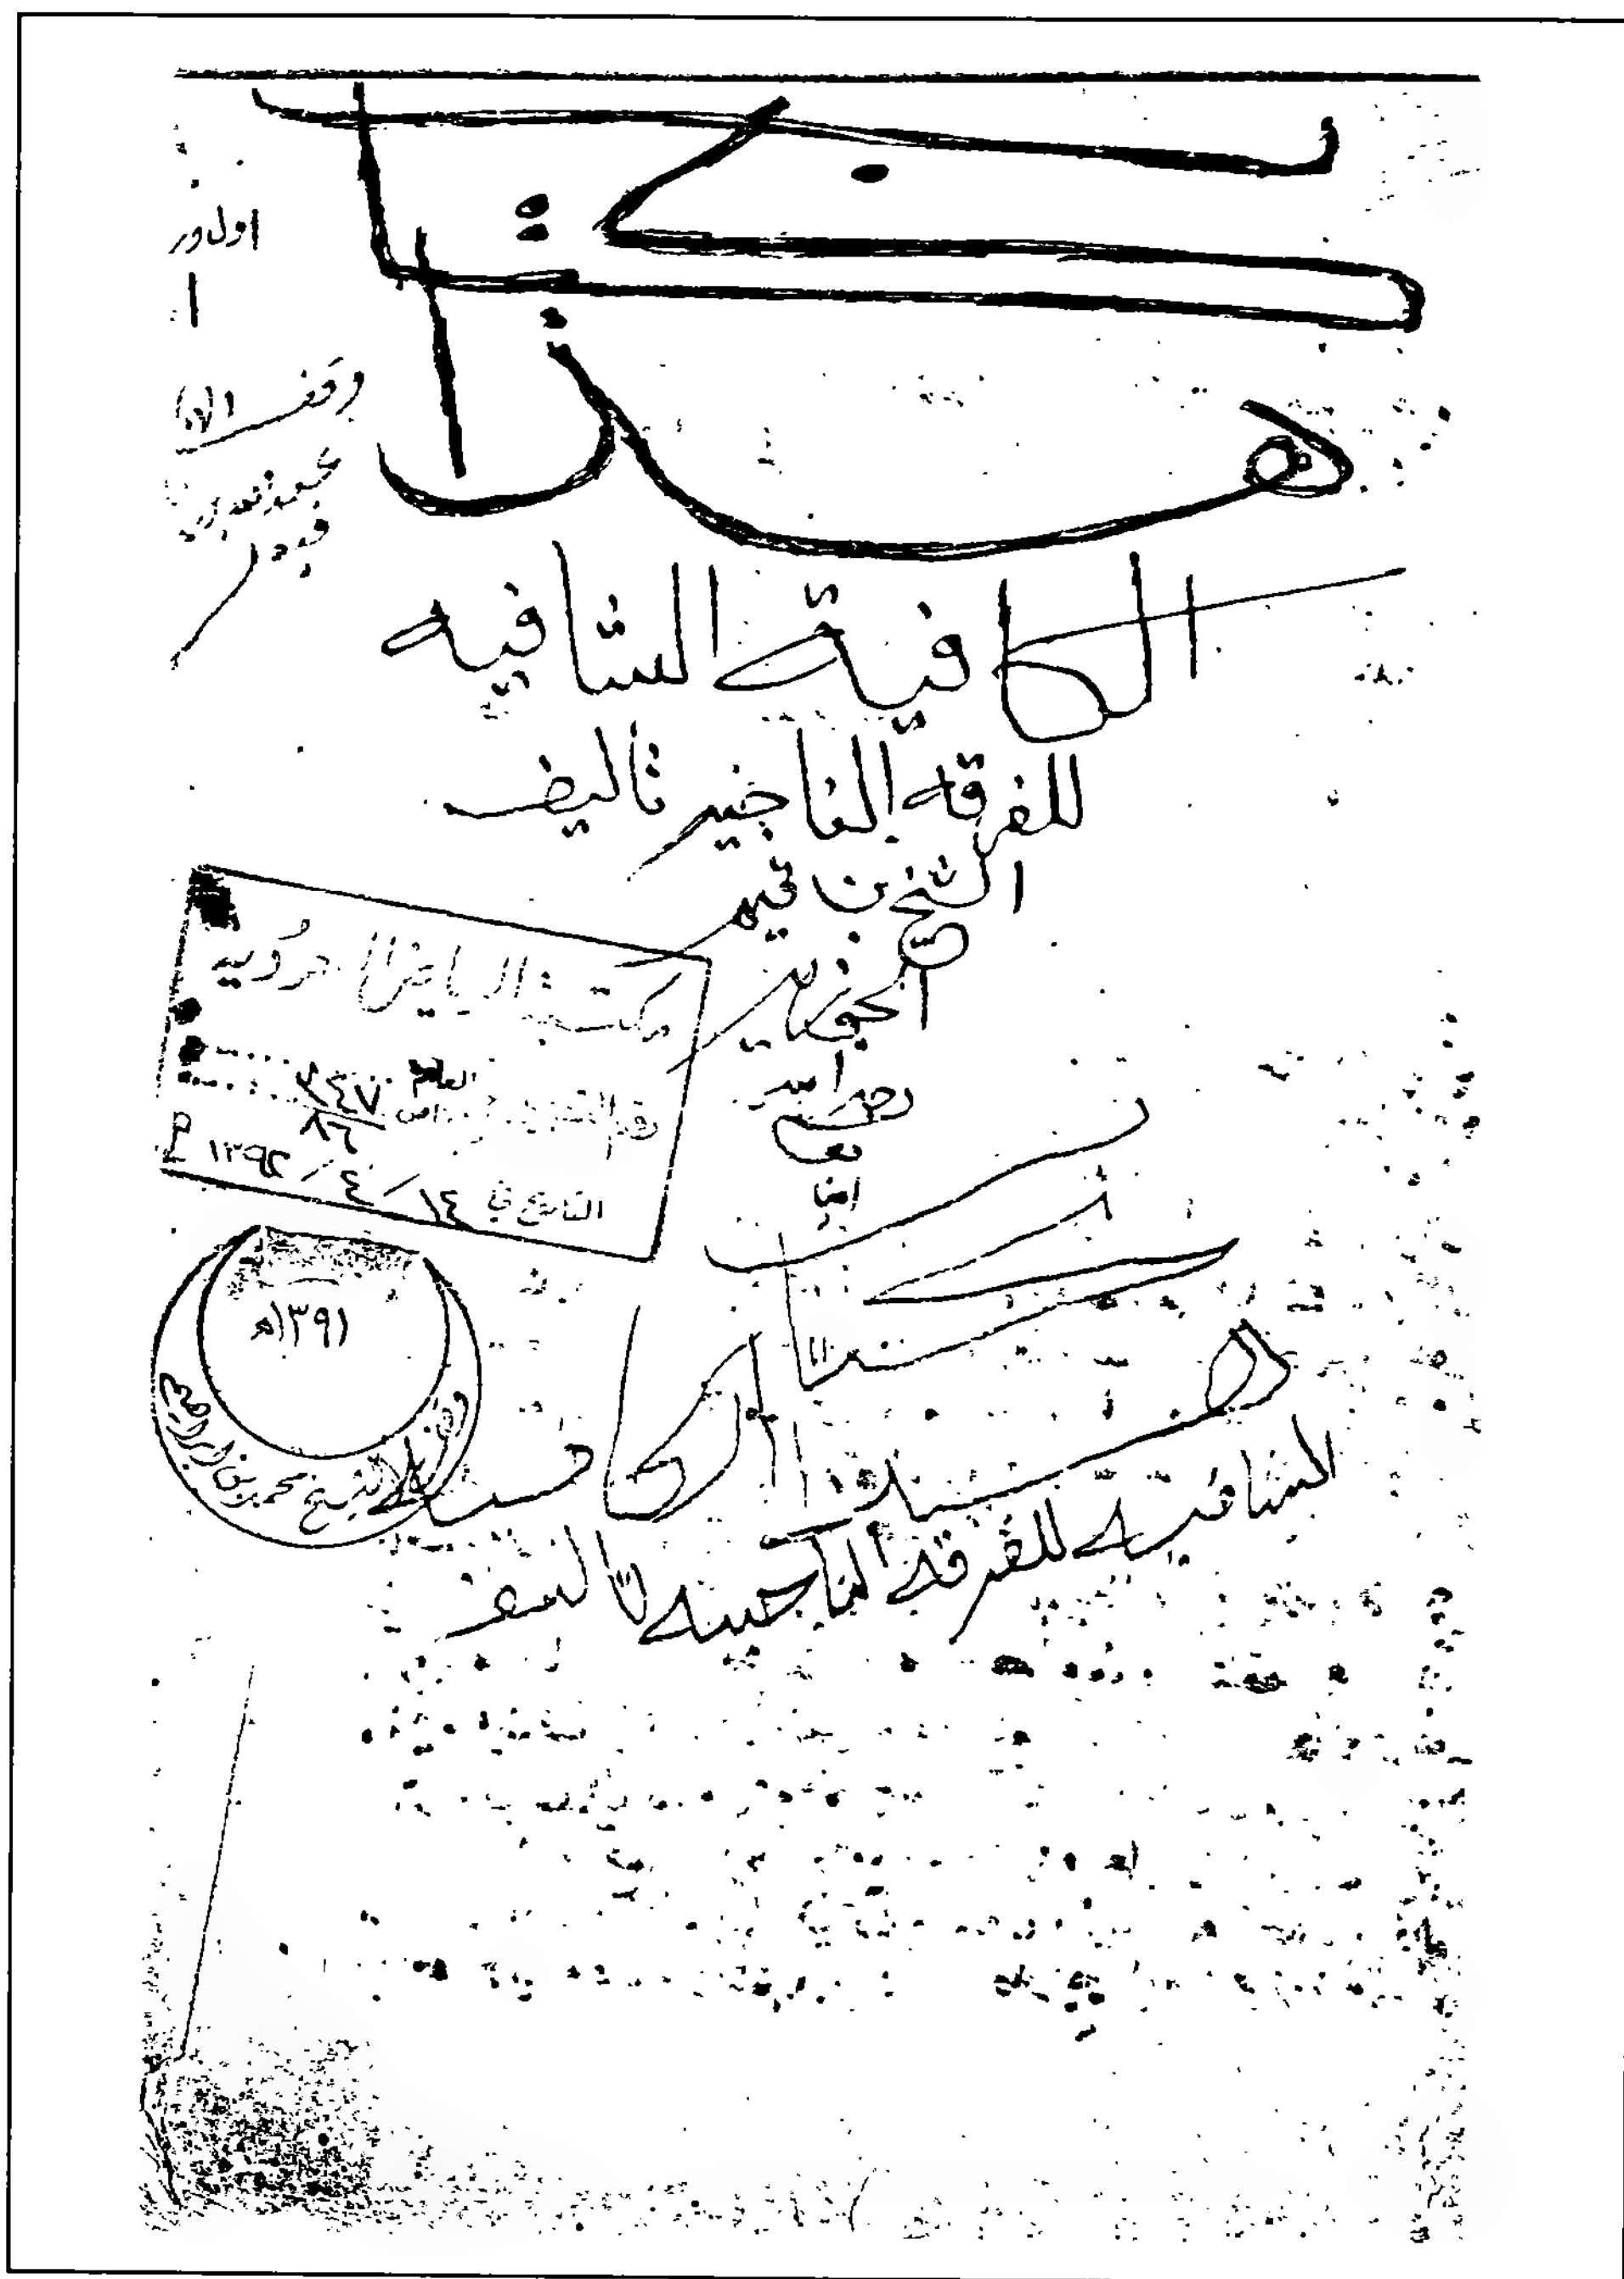 كتاب
هذا
الكافية الشافيه
للفرقه الناجيه تاليف
الشيخ بن قيم
الجوزيه
رحمه الله
تعا
امين
اول ور
١
وقف
مكتبة الرياض السعوديه
رقم العام ٣٤٧
٨٦
التاريخ في ١٤ / ٤ / ١٣٩٢ هـ
١٣٩١هـ
وقف الشيخ محمد بن ابراهيم
كتاب
هذا الكافيه
الشافيه للفرقه الناجيه تاليف